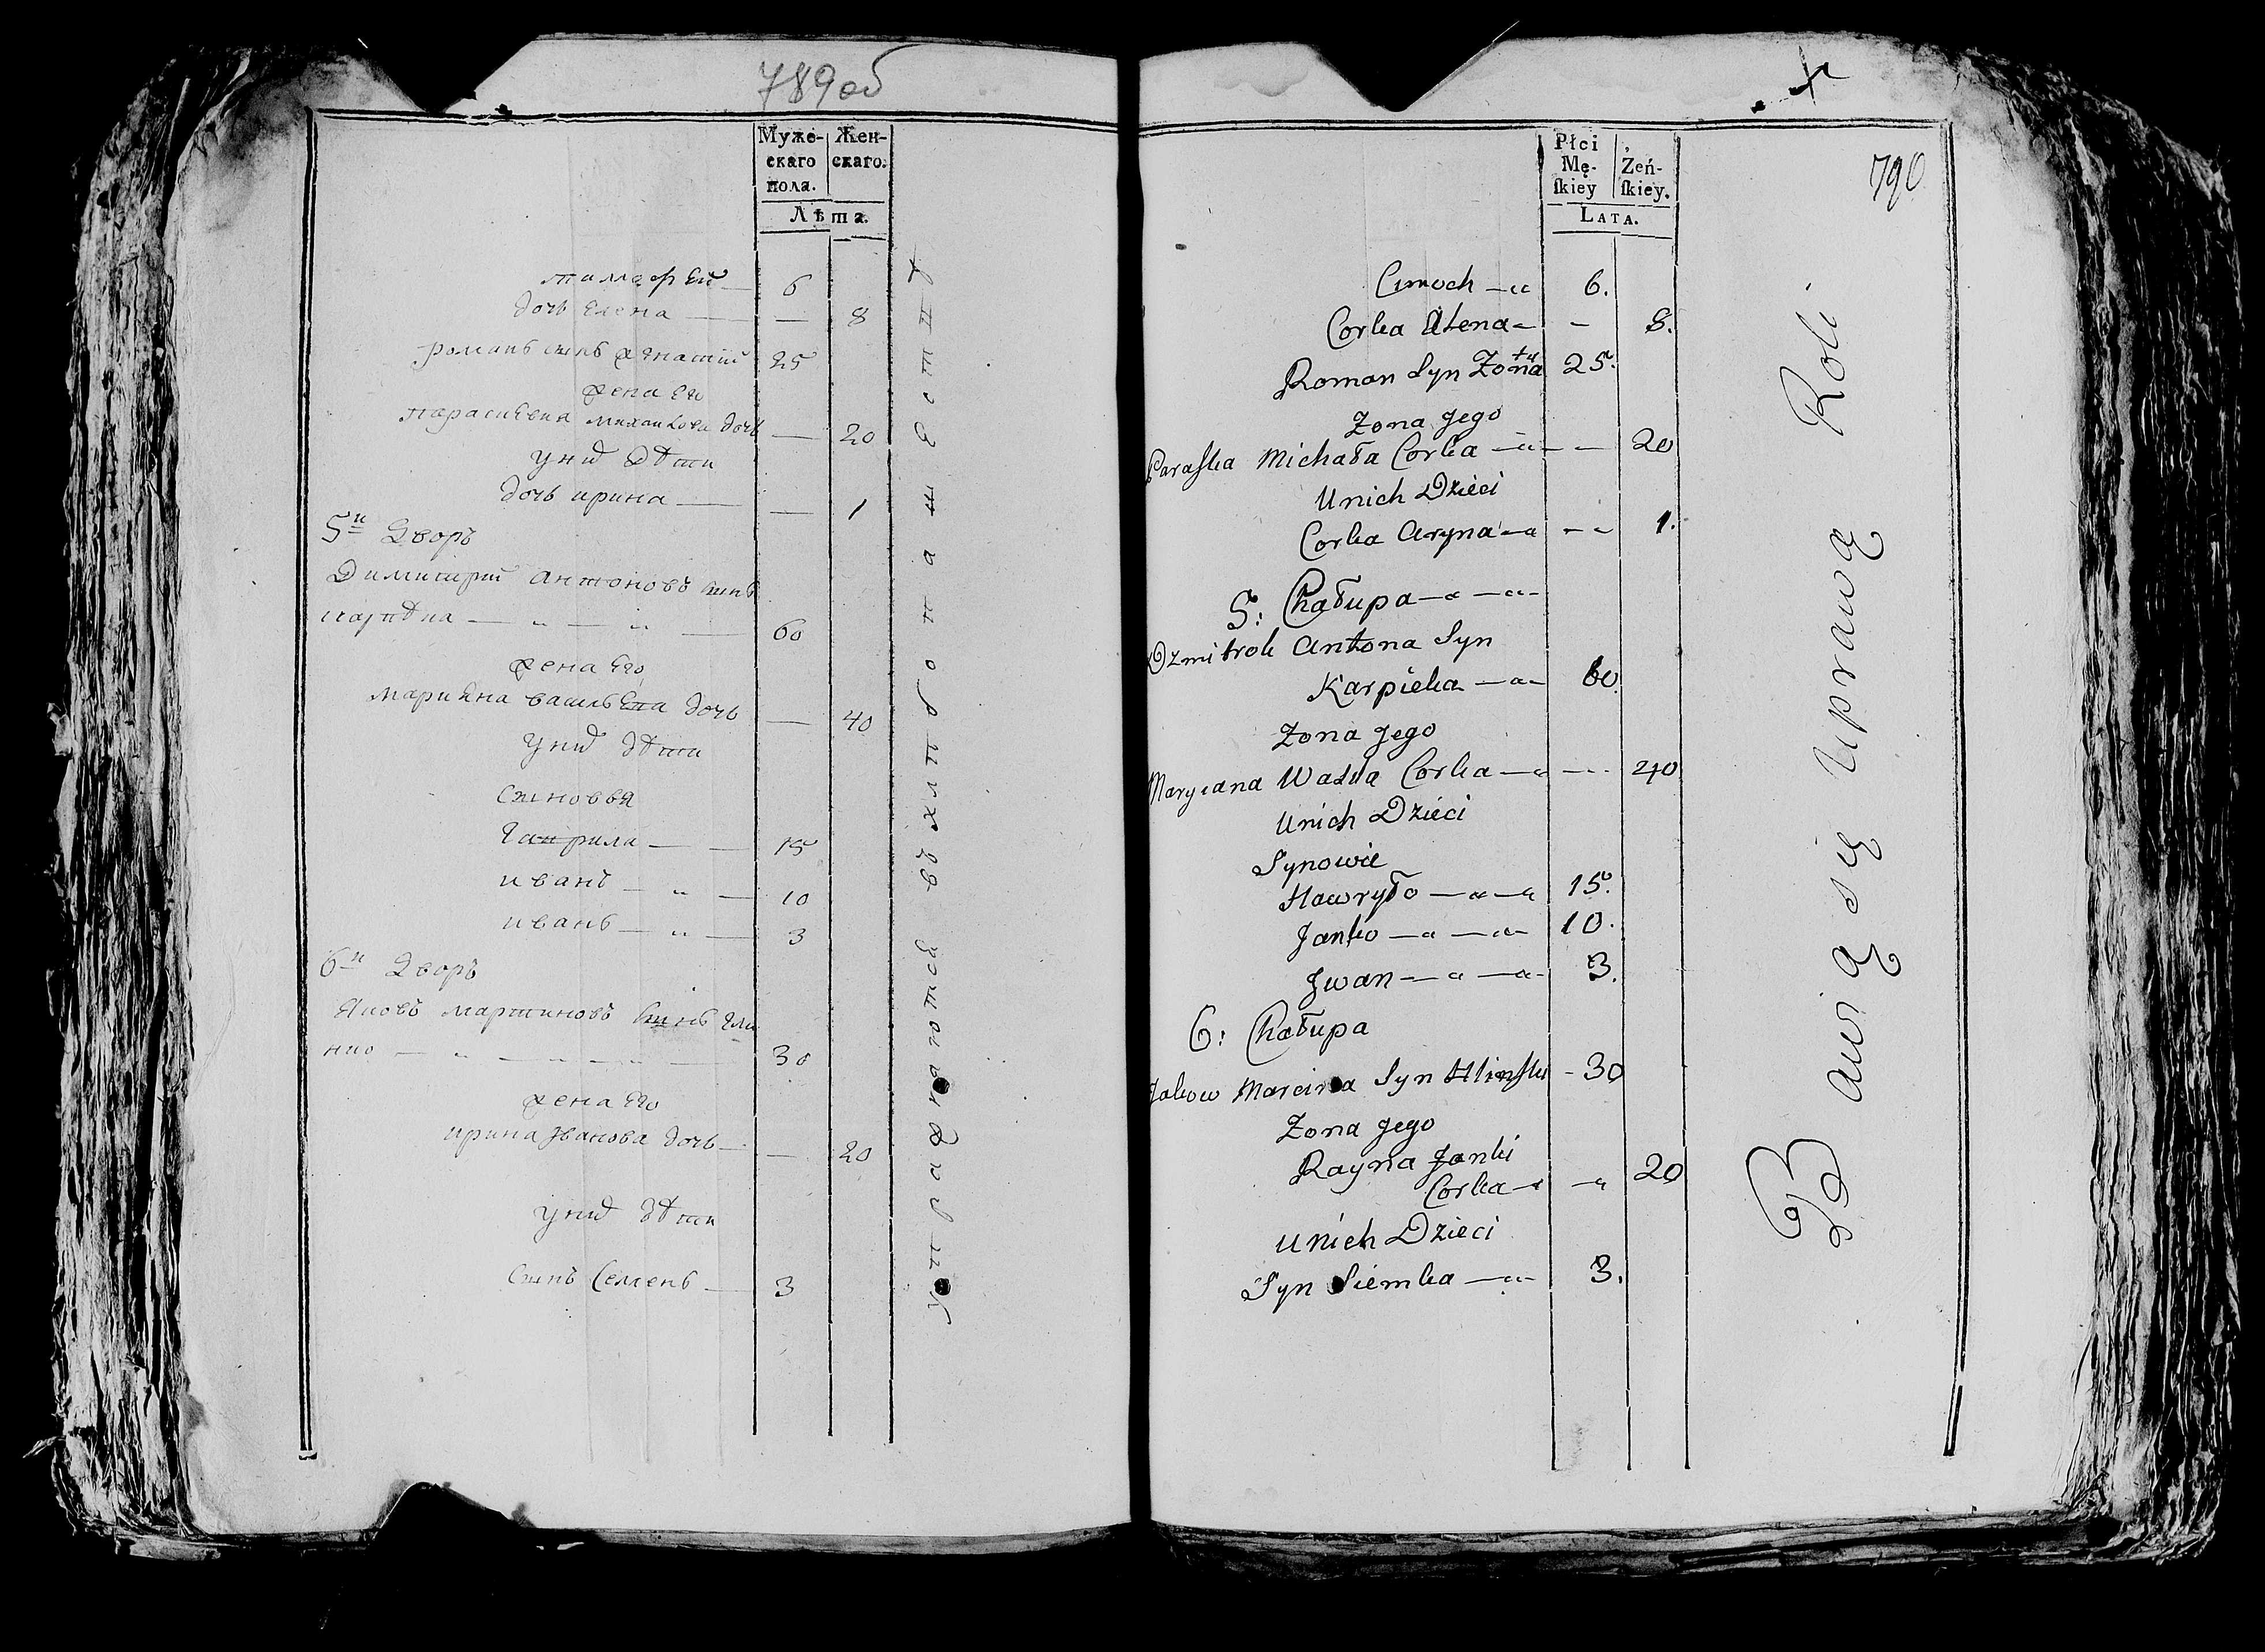 789об
Муже-
скаго
пола.
Жен-
скаго.
Лѣта.
тимофей 6
дочь Елена — — 8
романъ сынъ женатый 25
жена Его
параскевия михайлова дочь — 20
у них дѣти
дочь ирина — — 1
5й Дворъ
Димитрий антоновъ сынъ
карпѣка — „ — „ — 60
жена Его
марияна васильева дочь — 40
у них дѣти
Сыновья
Гаврила — — 15
иванъ — „ — 10
иванъ — „ — 3
6й Дворъ
Яковъ мартиновъ сынъ гли
нко — „ — „ — „ — 30
жена Его
ирина Иванова дочь — — 20
у них дѣти
сынъ Семенъ — 3
упражняются въ хлѣбопашестѣ
790
Płci
Mę-
ſkiey
Żeń-
ſkiey.
Lata.
Cimoch — 6.
Corka Alena — — 8.
Roman Syn Zonaty 25.
Zona Jego
Paraska Michała Corka — — 20
Unich Dzieci
Corka Aryna — — 1.
5: Chałupa — —
Dzmitrok Antona Syn
Karpieka — 60.
Zona Jego
Maryana Wasila Corka — — 40
Unich Dzieci
Synowie
Hawryło — — 15.
Janko — — 10.
Jwan — — 3.
6: Chałupa
Jakow Marcina Syn Hlinsku - 30
Zona Jego
Rayna Janki
Corka — — 20
Unich Dzieci
Syn Siemka — 3.
Bawią się Uprawą Roli